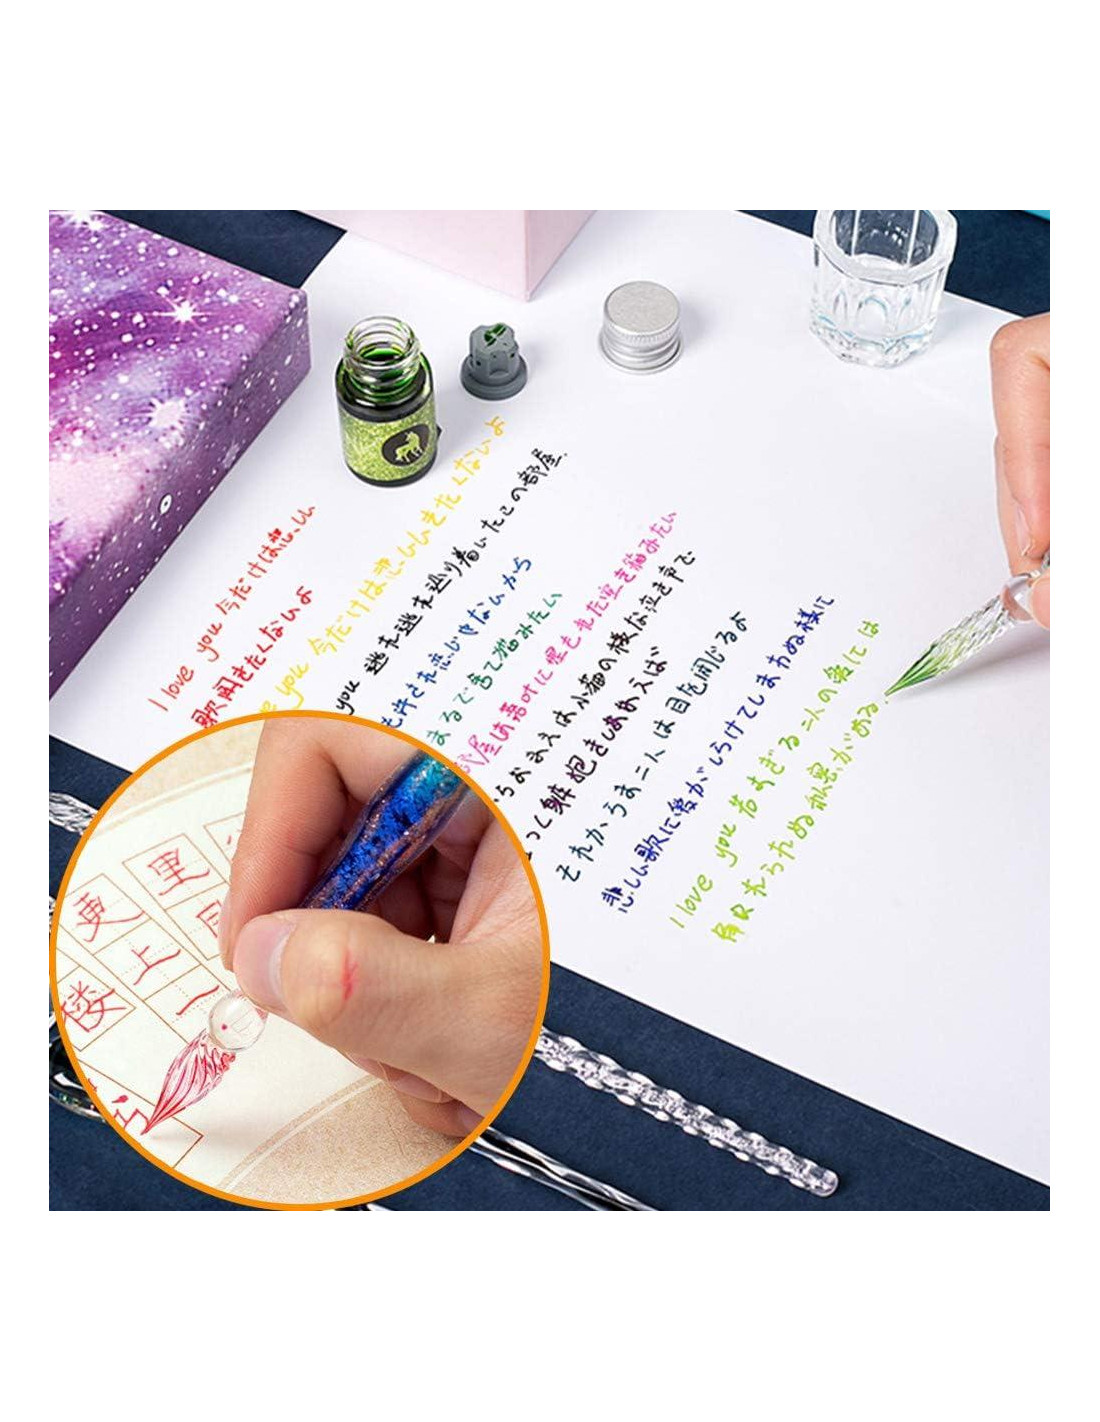 I love you 今だけは悲しい
歌聞きたくないよ
you 今だけは悲しいききたくないよ
you 逃れ逃れ巡り着いたこの部屋
も許され恋じゃないから
まるで捨て猫みたい
部屋は落叶に埋もれた空き箱みたい
小猫の様な泣き声で
抱きしめあえば
それからまた二人は目を閉じるよ
悲しい歌に愛がしらけてしまわぬ様に
I love you 若すぎる二人の愛には
触れられぬ秘密がある
里
更
上
一
楼